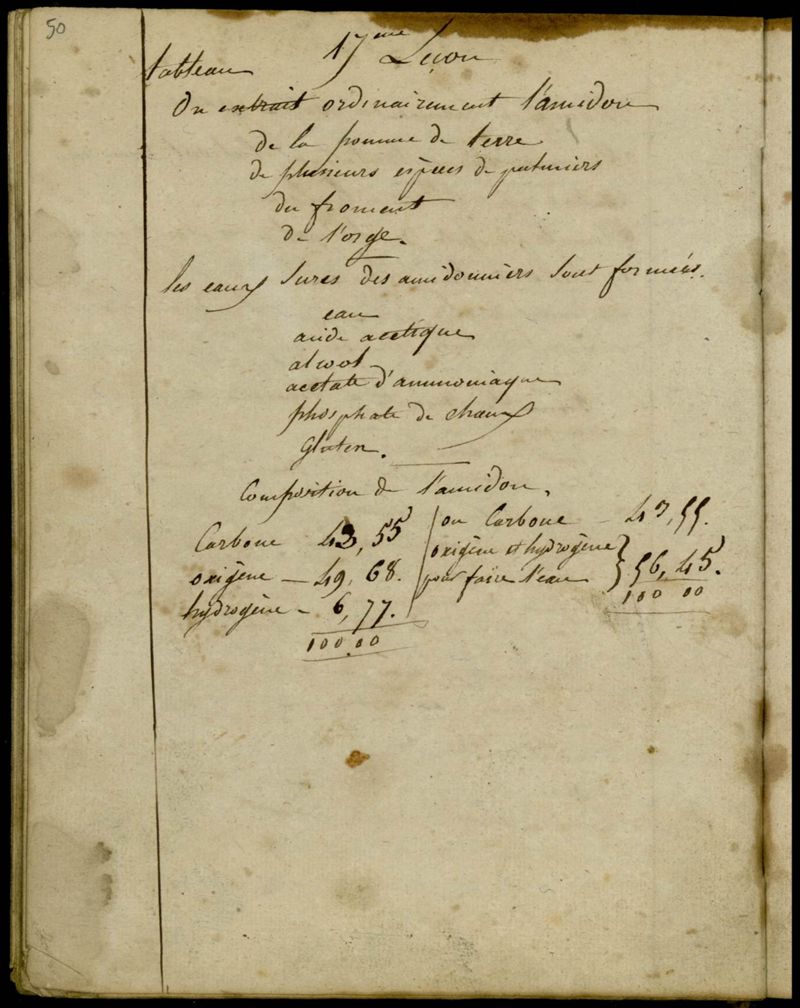 50
17me Leçon
tableau
On extrait ordinairement l'amidon
de la pomme de terre
de plusieurs espèces de palmiers
du froment
de l'orge.
les eaux sures des amidonniers sont formées.
eau
acide acetique
alcool
acetate d'ammoniaque
phosphate de chaux
Gluten.
Composition de l'amidon.
Carbone 43,55
oxigène — 49,68.
hydrogène - 6,77.
100.00
ou Carbone — 43,55.
oxigène et hydrogène
pour faire l'eau } 56,45.
100 00